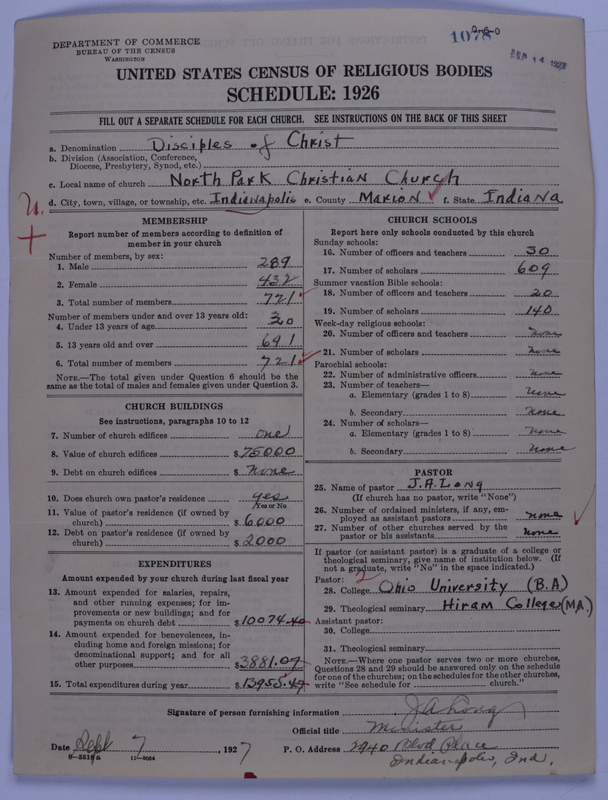 1078
DEPARTMENT OF COMMERCE
BUREAU OF THE CENSUS
WASHINGTON
UNITED STATES CENSUS OF RELIGIOUS BODIES
SCHEDULE: 1926
FILL OUT A SEPARATE SCHEDULE FOR EACH CHURCH. SEE INSTRUCTIONS ON THE BACK OF THIS SHEET
a. Denomination Disciples of Christ
b. Division (Association, Conference, Diocese, Presbytery, Synod, etc.)
c. Local name of church North Park Christian Church
d. City, town, village, or township, etc. Indianapolis e. County Marion f. State Indiana
MEMBERSHIP
Report number of members according to definition of
member in your church
Number of members, by sex:
1. Male 289
2. Female 432
3. Total number of members 721
Number of members under and over 13 years old:
4. Under 13 years of age 30
5. 13 years old and over 691
6. Total number of members 721
NOTE.—The total given under Question 6 should be
same as the total of males and females given under Question 3.
CHURCH BUILDINGS
See instructions, paragraphs 10 to 12
7. Number of church edifices one
8. Value of church edifices $75000
9. Debt on church edifices $ none
10. Does church own pastor's residence yes
Yes or No
11. Value of pastor's residence (if owned by
church) $6000
12. Debt on pastor's residence (if owned by
church) $2000
EXPENDITURES
Amount expended by your church during last fiscal year
13. Amount expended for salaries, repairs,
and other running expenses; for im-
provements or new buildings; and for
payments on church debt $10074.40
14. Amount expended for benevolences, in-
cluding home and foreign missions; for
denominational support; and for all
other purposes $3881.07
15. Total expenditures during year $13955.47
CHURCH SCHOOLS
Report here only schools conducted by this church
Sunday schools:
16. Number of officers and teachers 50
17. Number of scholars 609
Summer vacation Bible schools:
18. Number of officers and teachers 20
19. Number of scholars 140
Week-day religious schools:
20. Number of officers and teachers none
21. Number of scholars none
Parochial schools:
22. Number of administrative officers none
23. Number of teachers—
a. Elementary (grades 1 to 8) none
b. Secondary none
24. Number of scholars—
a. Elementary (grades 1 to 8) none
b. Secondary none
PASTOR
25. Name of pastor J.A. Long
(If church has no pastor, write "None")
26. Number of ordained ministers, if any, em-
ployed as assistant pastors none
27. Number of other churches served by the
pastor or his assistants none
If pastor (or assistant pastor) is a graduate of a college or
theological seminary, give name of institution below. (If
not a graduate, write "No" in the space indicated.)
Pastor: 2
28. College Ohio University (B.A)
29. Theological seminary Hiram College (MA.)
Assistant pastor:
30. College
31. Theological seminary
NOTE.—Where one pastor serves two or more churches,
Questions 28 and 29 should be answered only on the schedule
for one of the churches; on the schedules for the other churches,
write "See schedule for church."
Signature of person furnishing information J A Long
Official title Minister
Date Sept 7, 1927 P. O. Address 2940 Blvd Place
Indianapolis, Ind.
8-5518a 11-9054